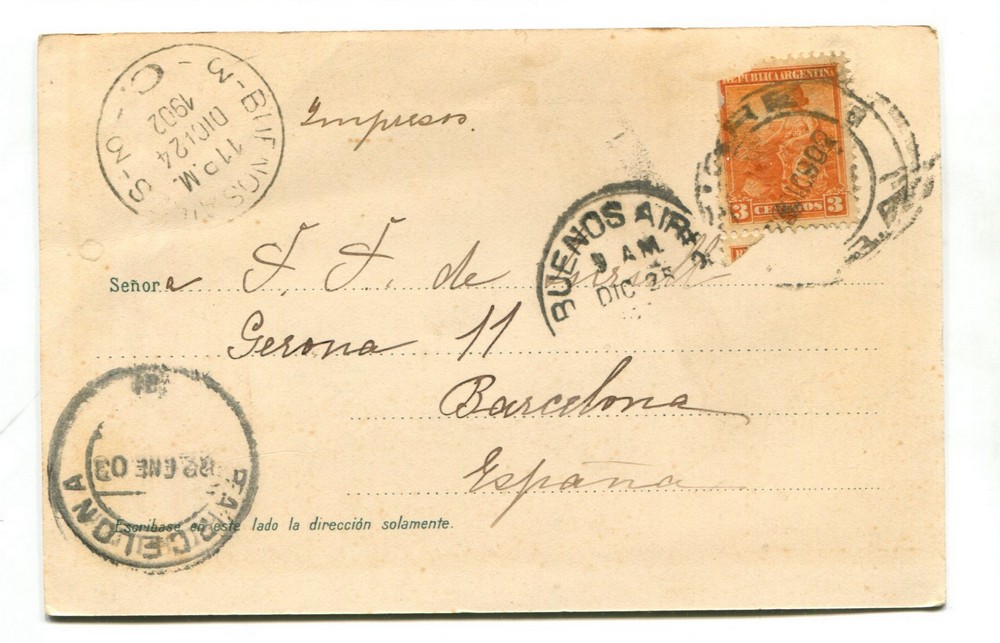 3 - BUENOS AI
11 P M.
DIC. 24
1902
C. - 3 - S
Impresos.
REPUBLICA ARGENTINA
3 CENTAVOS 3
BUENOS AIRE
AM.
DIC 25
Señora F. F. de
Gerona 11
Barcelona
España
BARCELONA
ENE 03
Escribase en este lado la dirección solamente.